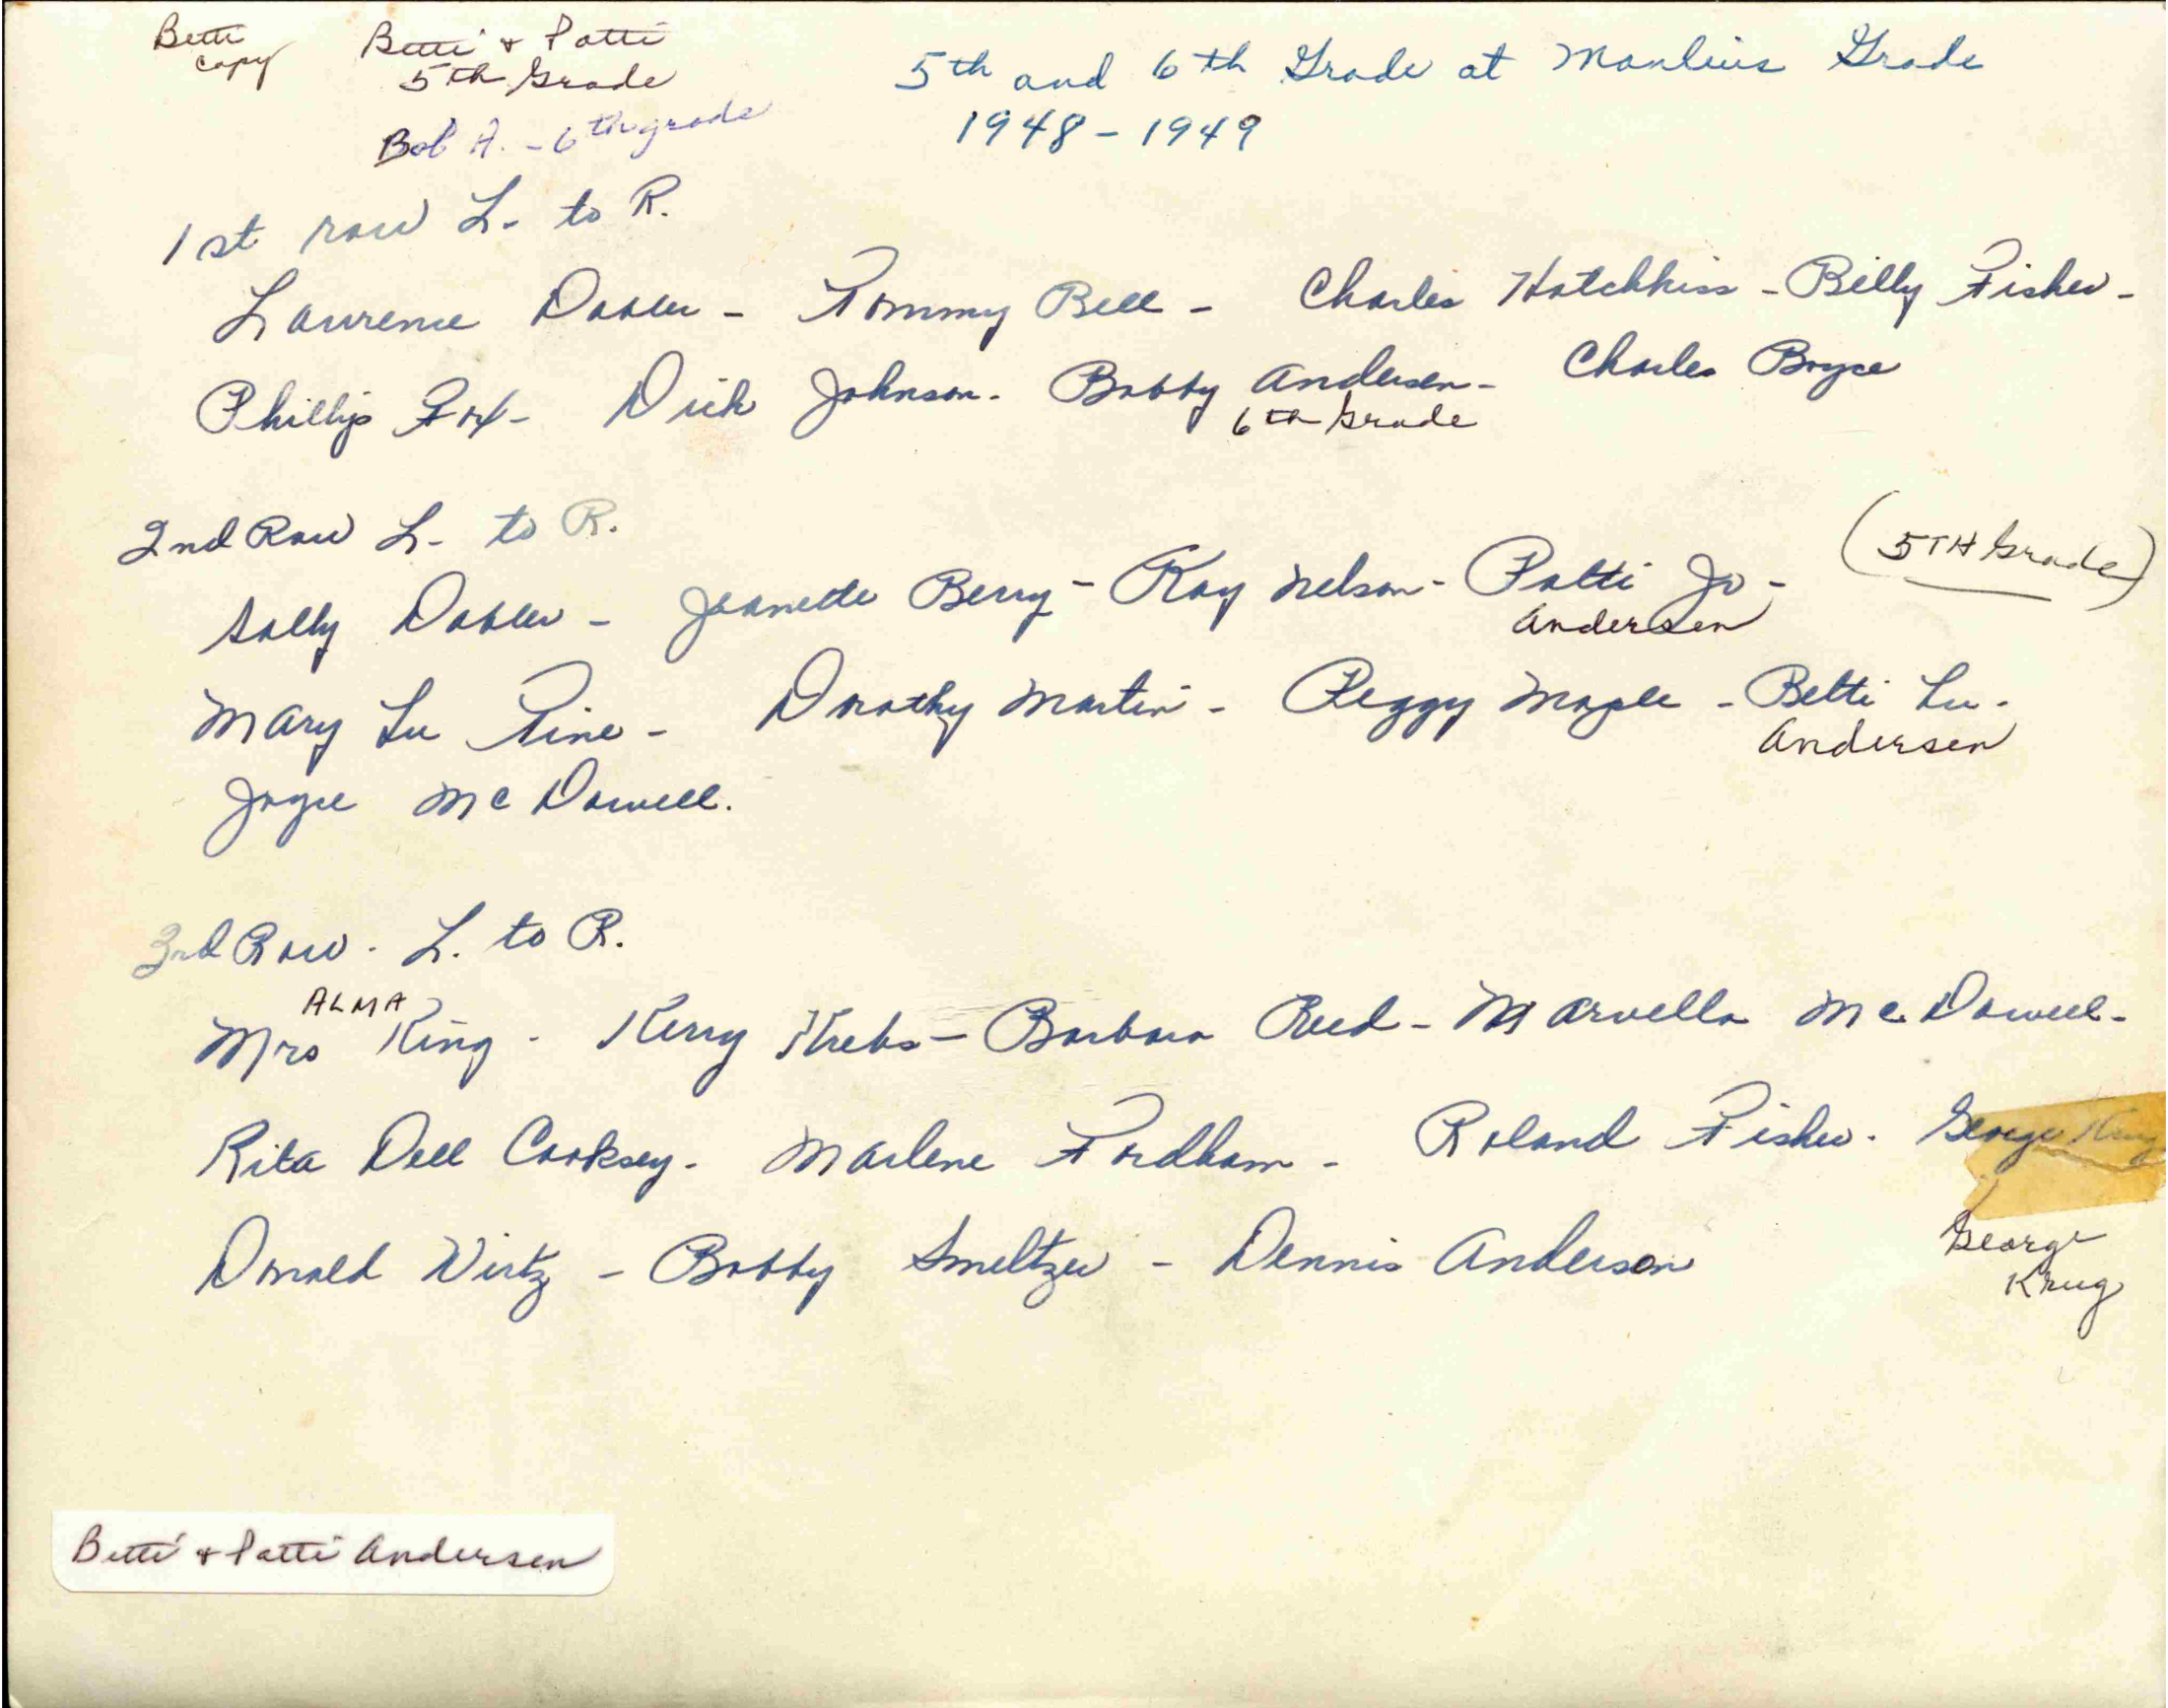 Betti
copy
Betti & Patti
5th Grade
Bob A. - 6th grade
5th and 6th Grade at Manlius Grade
1948 - 1949
1st row L. to R.
Lawrence Dabler - Tommy Bell - Charles Hotchkiss - Billy Fisher -
Phillip Fox - Dick Johnson - Bobby Andersen - Charles Bryce
6th Grade
2nd Row L. to R.
(5TH Grade)
Sally Dabler - Jeanette Berry - Kay Nelson - Patti Jo -
Andersen
Mary Lu Pine - Dorothy Martin - Peggy Maple - Betti Lu -
Andersen
Joyce McDowell.
3rd Row - L. to R.
ALMA
Mrs King - Kerry Krebs - Barbara Reed - Marvella McDowell -
Rita Dell Cooksey - Marlene Fordham - Roland Fisher - George Krug
Donald Wirtz - Bobby Smeltzer - Dennis Anderson
George
Krug
Betti & Patti Andersen